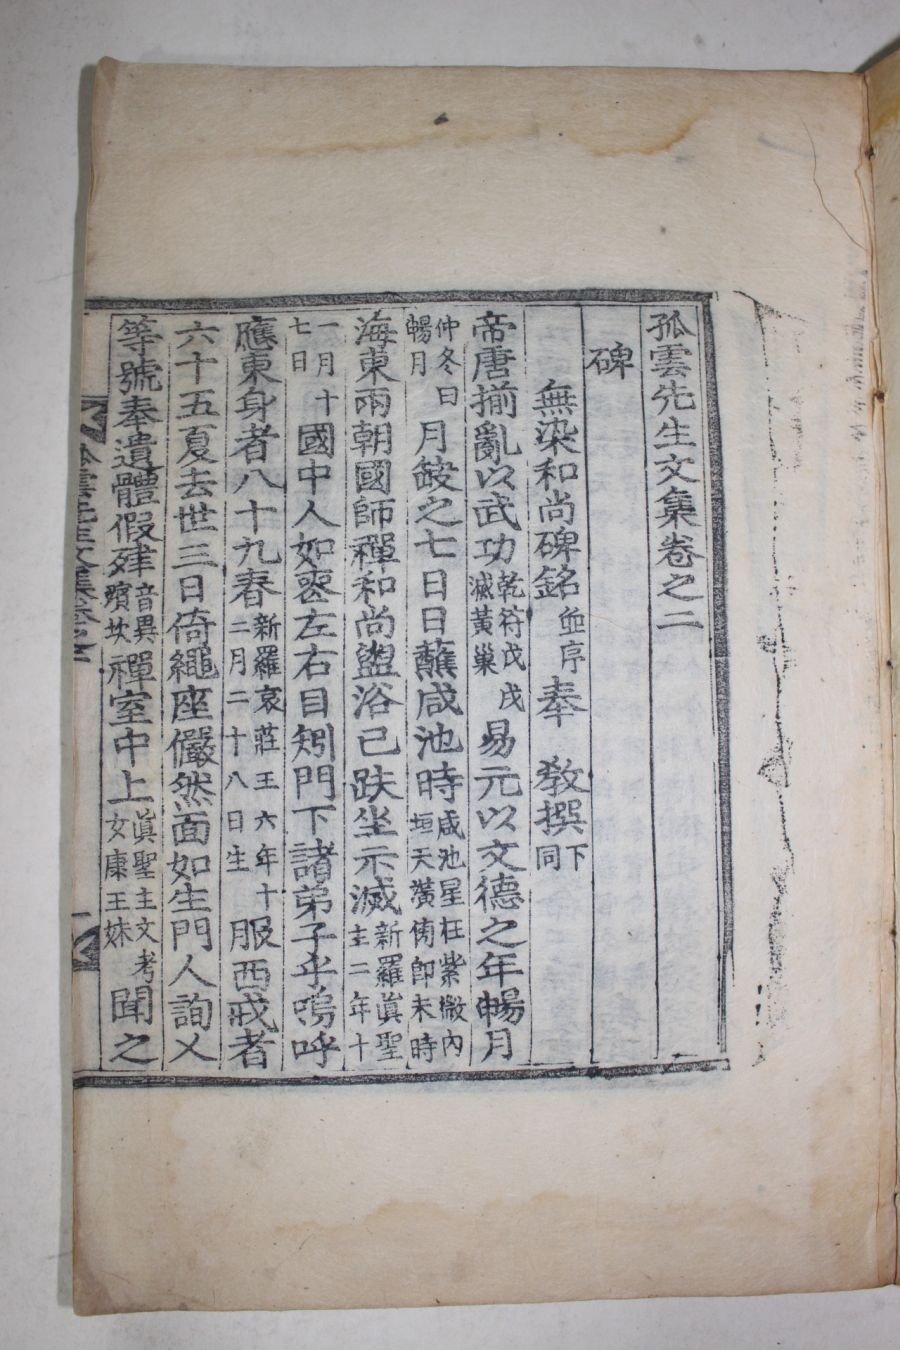 孤雲先生文集卷之二
碑
無染和尚碑銘並序奉　教撰下同
帝唐揃亂以武功乾符戊戌滅黃巢易元以文德之年暢月
仲冬曰暢月月缺之七日日蘸咸池時咸池星在紫微內垣天潢傍卽未時
海東兩朝國師禪和尚盥浴已趺坐示滅新羅眞聖主二年十
一月十七日國中人如喪左右目矧門下諸弟子乎嗚呼
應東身者八十九春新羅哀莊王六年十二月二十八日生服西戒者
六十五夏去世三日倚繩座儼然面如生門人詢乂
等號奉遺體假肂音異殯坎禪室中上眞聖主文考女康王妹聞之
孤雲先生文集卷之二
一